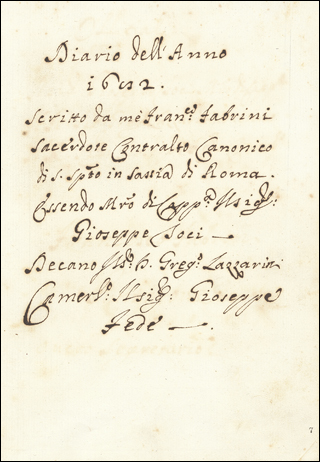 Diario dell'Anno
1692.
Scritto da me Fran.co Fabrini
Sacerdote Contralto Canonico
di S. Spto in Sassia di Roma.
Essendo Mro di Capp.a Il Sig.
Gioseppe Joci —
Decano Il Sr. D. Greg.o Lazzarini
Camerl.o Il Sig. Gioseppe
Fede —.
7